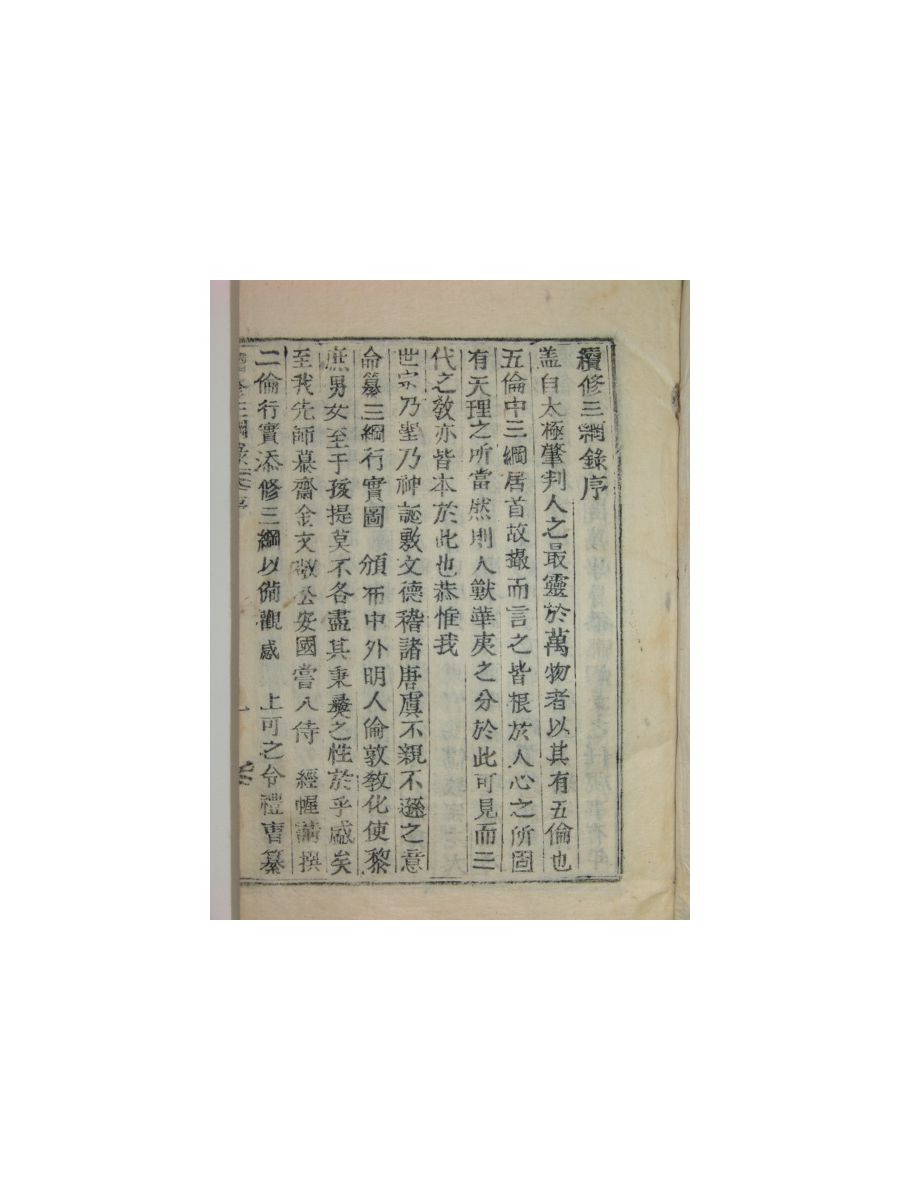 續修三綱錄序
盖自太極肇判人之最靈於萬物者以其有五倫也
五倫中三綱居首故撮而言之皆根於人心之所固
有天理之所當然則人獸華夷之分於此可見而三
代之敎亦皆本於此也恭惟我
世宗乃聖乃神誕敷文德稽諸唐虞不親不遜之意
命纂三綱行實圖 頒布中外明人倫敦敎化使黎
庶男女至于孩提莫不各盡其秉彜之性於乎盛矣
至我先師慕齋金文敬公安國嘗入侍 經幄請撰
二倫行實添修三綱以備觀感 上可之令禮曹纂